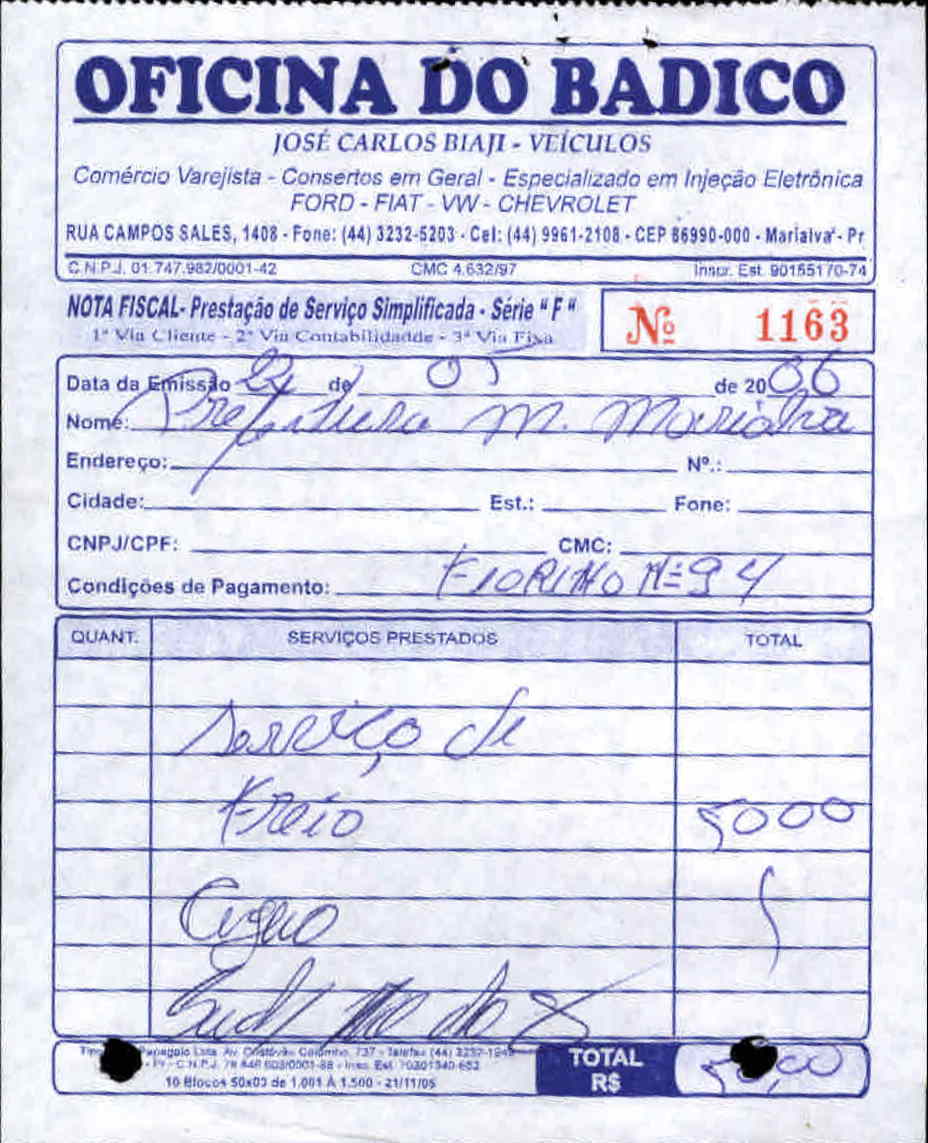 OFICINA DO BADICO
JOSÉ CARLOS BIAJI - VEÍCULOS
Comércio Varejista - Consertos em Geral - Especializado em Injeção Eletrônica
FORD - FIAT - VW - CHEVROLET
RUA CAMPOS SALES, 1408 - Fone: (44) 3232-5203 - Cel: (44) 9961-2108 - CEP 86990-000 - Marialva - Pr
C.N.P.J. 01.747.982/0001-42 CMC 4.632/97 Inscr. Est. 90155170-74
NOTA FISCAL- Prestação de Serviço Simplificada - Série " F "
1ª Via Cliente - 2ª Via Contabilidadde - 3ª Via Fixa
Nº 1163
Data da Emissão de 05 de 2006
Nome: Prefeitura M. Marialva
Endereço: Nº.:
Cidade: Est.: Fone:
CNPJ/CPF: CMC:
Condições de Pagamento: FIORINO Nº 94
QUANT. SERVIÇOS PRESTADOS TOTAL
Serviço de
Freio 5000
Av. Cristóvão Colombo, 737 - Telefax (44) 3232-1245
10 Blocos 50x03 de 1.001 À 1.500 - 21/11/05
TOTAL
R$ 50,00